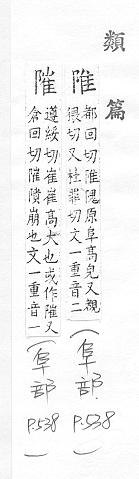 類篇
陮 都回切陮隗原阜高皃又覩
猥切又杜罪切文一重音二
(阜部 P.538)
陮 遵綏切崔崔高大也或作隀又
倉回切隀隤崩也文一重音一
(阜部 P.538)